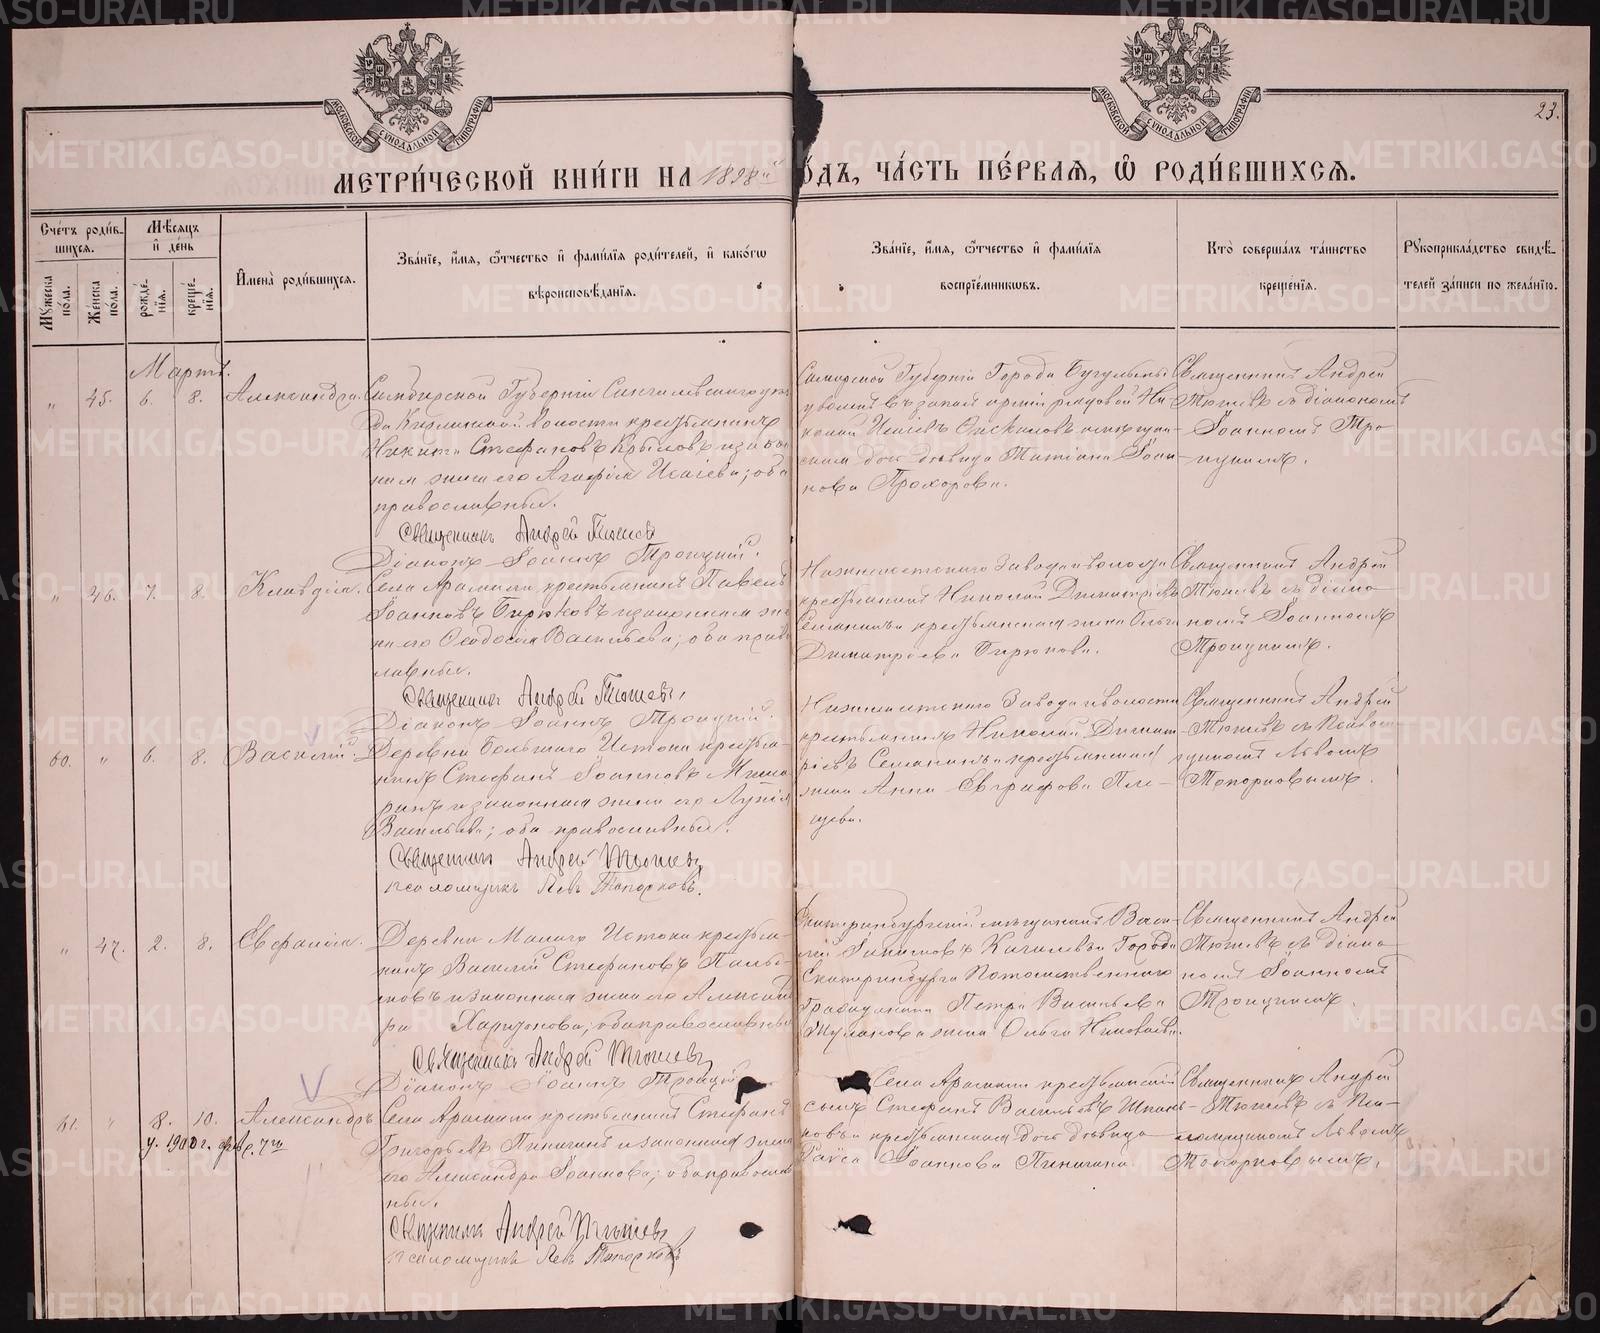 МОСКОВСКОЙ СѴНОДАЛЬНОЙ ТИПОГРАФІИ
МОСКОВСКОЙ СѴНОДАЛЬНОЙ ТИПОГРАФІИ
23.
МЕТРИ́ЧЕСКОЙ КНИ́ГИ НА 1898й
О́ДЪ, ЧА́СТЬ ПЕ́РВАѦ, Ѡ҆ РОДИ́ВШИХСѦ.
Сче́тъ роди́в-
шихсѧ.
Мꙋжеска по́ла.
Же́нска по́ла.
Мѣ́сѧцъ
и҆ де́нь
рожде́-
нїѧ.
креще́-
нїѧ.
И҆мена̀ роди́вшихсѧ.
Зва́нїе, и҆́мѧ, ѻ҆́тчество и҆ фами́лїѧ роди́телей, и҆ како́гѡ
вѣроисповѣ́данїѧ.
Зва́нїе, и҆́мѧ, ѻ҆́тчество и҆ фами́лїѧ
воспрїе́мникѡвъ.
Кто̀ соверша́лъ та́инство
креще́нїѧ.
Рꙋкоприкла́дство свидѣ́-
телей за́писи по жела́нїю.
Мартъ.
" 45. 6. 8. Александра.
Симбирской Губерніи Сингилевскаго уѣз-
да волости крестьянинъ
Никита Стефановъ Крыловъ и закон-
ная жена его Агафія Исаіева; оба
православные.
Священникъ Андрей Тюшевъ
Діаконъ Іоаннъ Троицкій.
Самарской Губерніи Города Бугульмы
уволен. въ запасъ арміи рядовой Ни-
колай Исаіевъ и мѣщан-
ская дочь дѣвица Татіана Іоан-
нова Прохорова.
Священникъ Андрей
Тюшевъ съ діакономъ
Іоанномъ Тро-
ицкимъ.
" 46. 7. 8. Клавдія.
Села Арамили крестьянинъ Павелъ
Іоанновъ Бирюковъ и законная же-
на его Ѳеодосія Васильева; оба право-
славные.
Священникъ Андрей Тюшевъ
Діаконъ Іоаннъ Троицкій.
Нижнеисетскаго Завода и волости
крестьянинъ Николай Димитріевъ
Семянинъ и крестьянская жена Ольга
Димитріева Бирюкова.
Священникъ Андрей
Тюшевъ съ діако-
номъ Іоанномъ
Троицкимъ.
60. " 6. 8. Василій.
Деревни Большаго Истока крестья-
нинъ Стефанъ Іоанновъ
и законная жена его Лукія
Васильева; оба православные.
Священникъ Андрей Тюшевъ
псаломщикъ Левъ Топорковъ.
Нижнеисетскаго Завода и волости
крестьянинъ Николай Димит-
ріевъ Семянинъ и крестьянская
жена Анна Евграфова Пле-
щева.
Священникъ Андрей
Тюшевъ съ Псалом-
щикомъ Львомъ
Топорковымъ.
" 47. 2. 8. Евфалія.
Деревни Малаго Истока крестья-
нинъ Василій Стефановъ
и законная жена его Алексан-
дра Харитонова; оба православные
Священникъ Андрей Тюшевъ
Діаконъ Іоаннъ Троицкій
Екатеринбургскій мѣщанинъ Васи-
лій Города
Екатеринбурга Потомственнаго
Гражданина Петра Васильева
жена Ольга Николаева.
Священникъ Андрей
Тюшевъ съ діако-
номъ Іоанномъ
Троицкимъ.
61. " 8. 10. Александръ
у. 1900 г. фев. 7го
Села Арамили крестьянинъ Стефанъ
Григорьевъ Пинигинъ и законная жена
его Александра Іоаннова; оба православ-
ные.
Священникъ Андрей Тюшевъ
псаломщикъ Левъ Топорковъ
Села Арамили крестьянскій
сынъ Стефанъ Васильевъ
и крестьянская дочь дѣвица
Раиса Іоаннова Пинигина.
Священникъ Андрей
Тюшевъ съ Пса-
ломщикомъ Львомъ
Топорковымъ.
METRIKI.GASO-URAL.RU